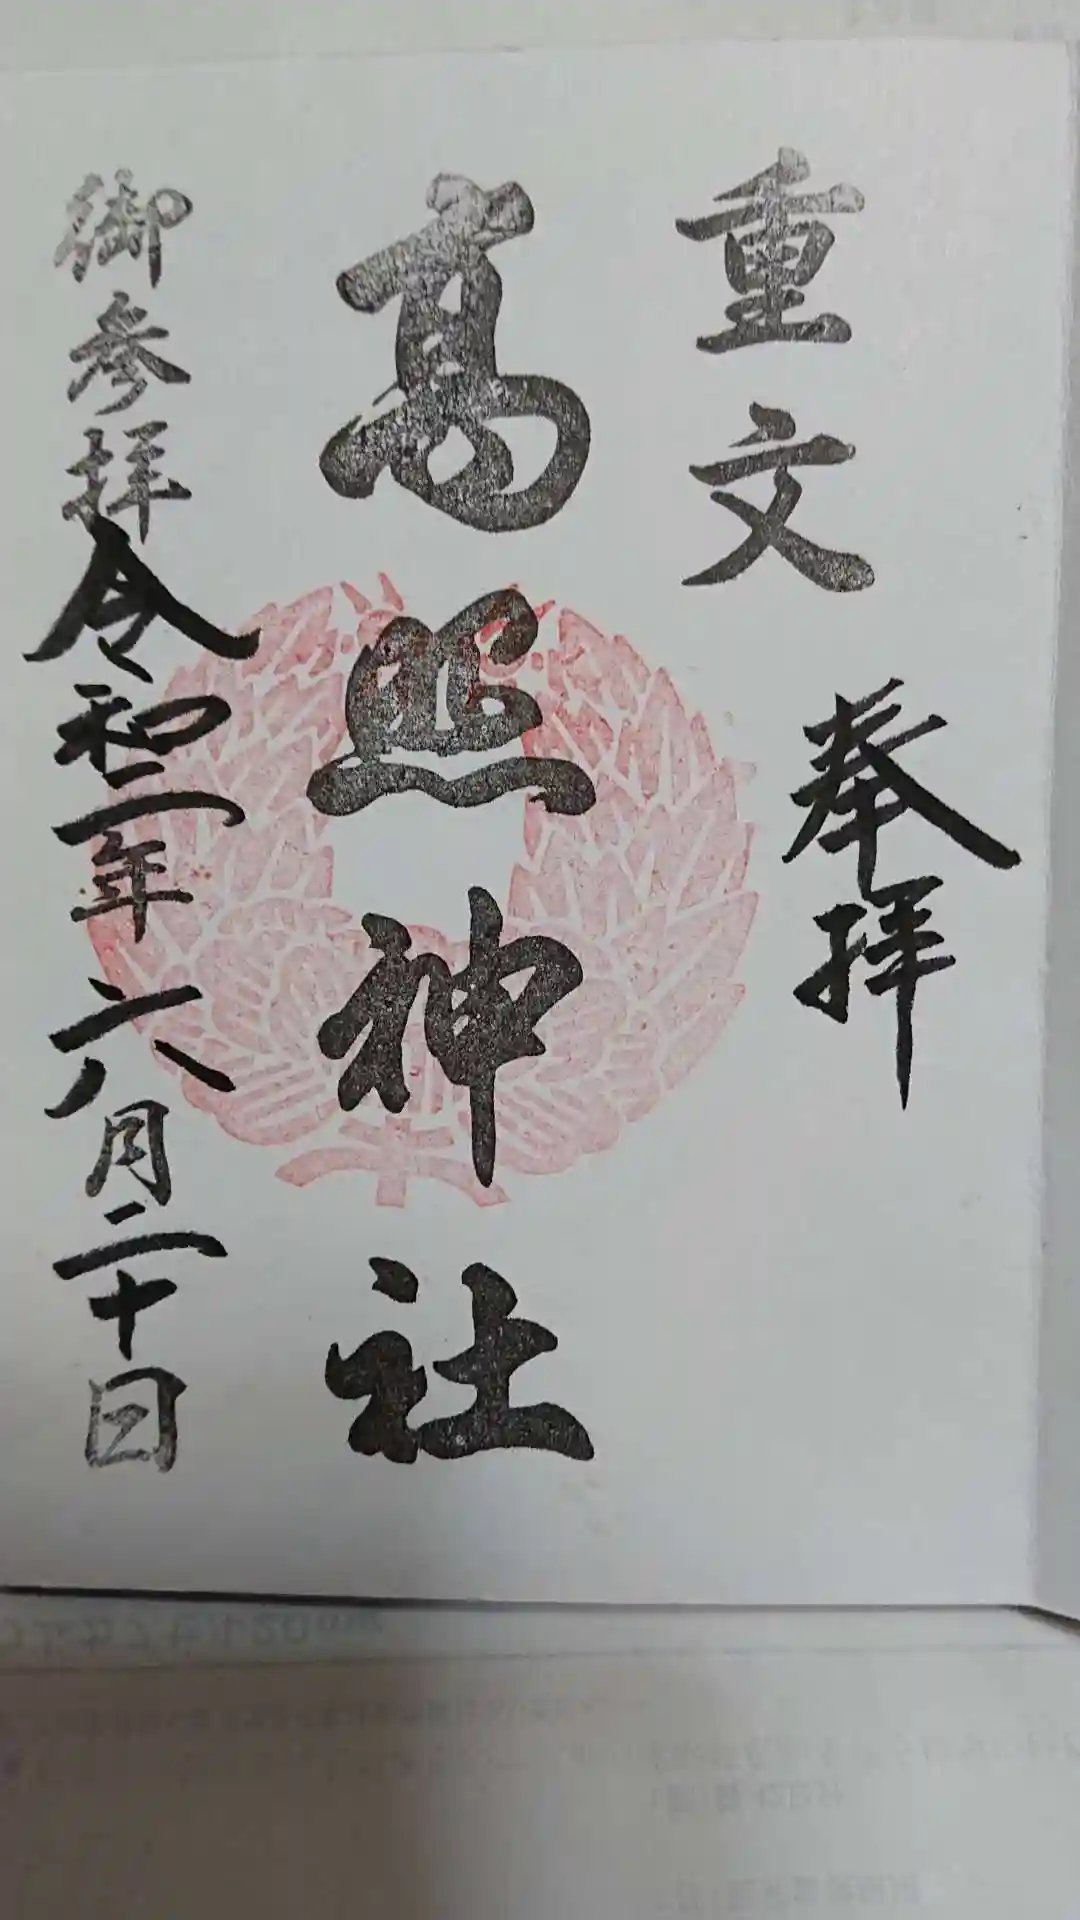 重文
奉拝
高照神社
御参拝令和二年六月二十日